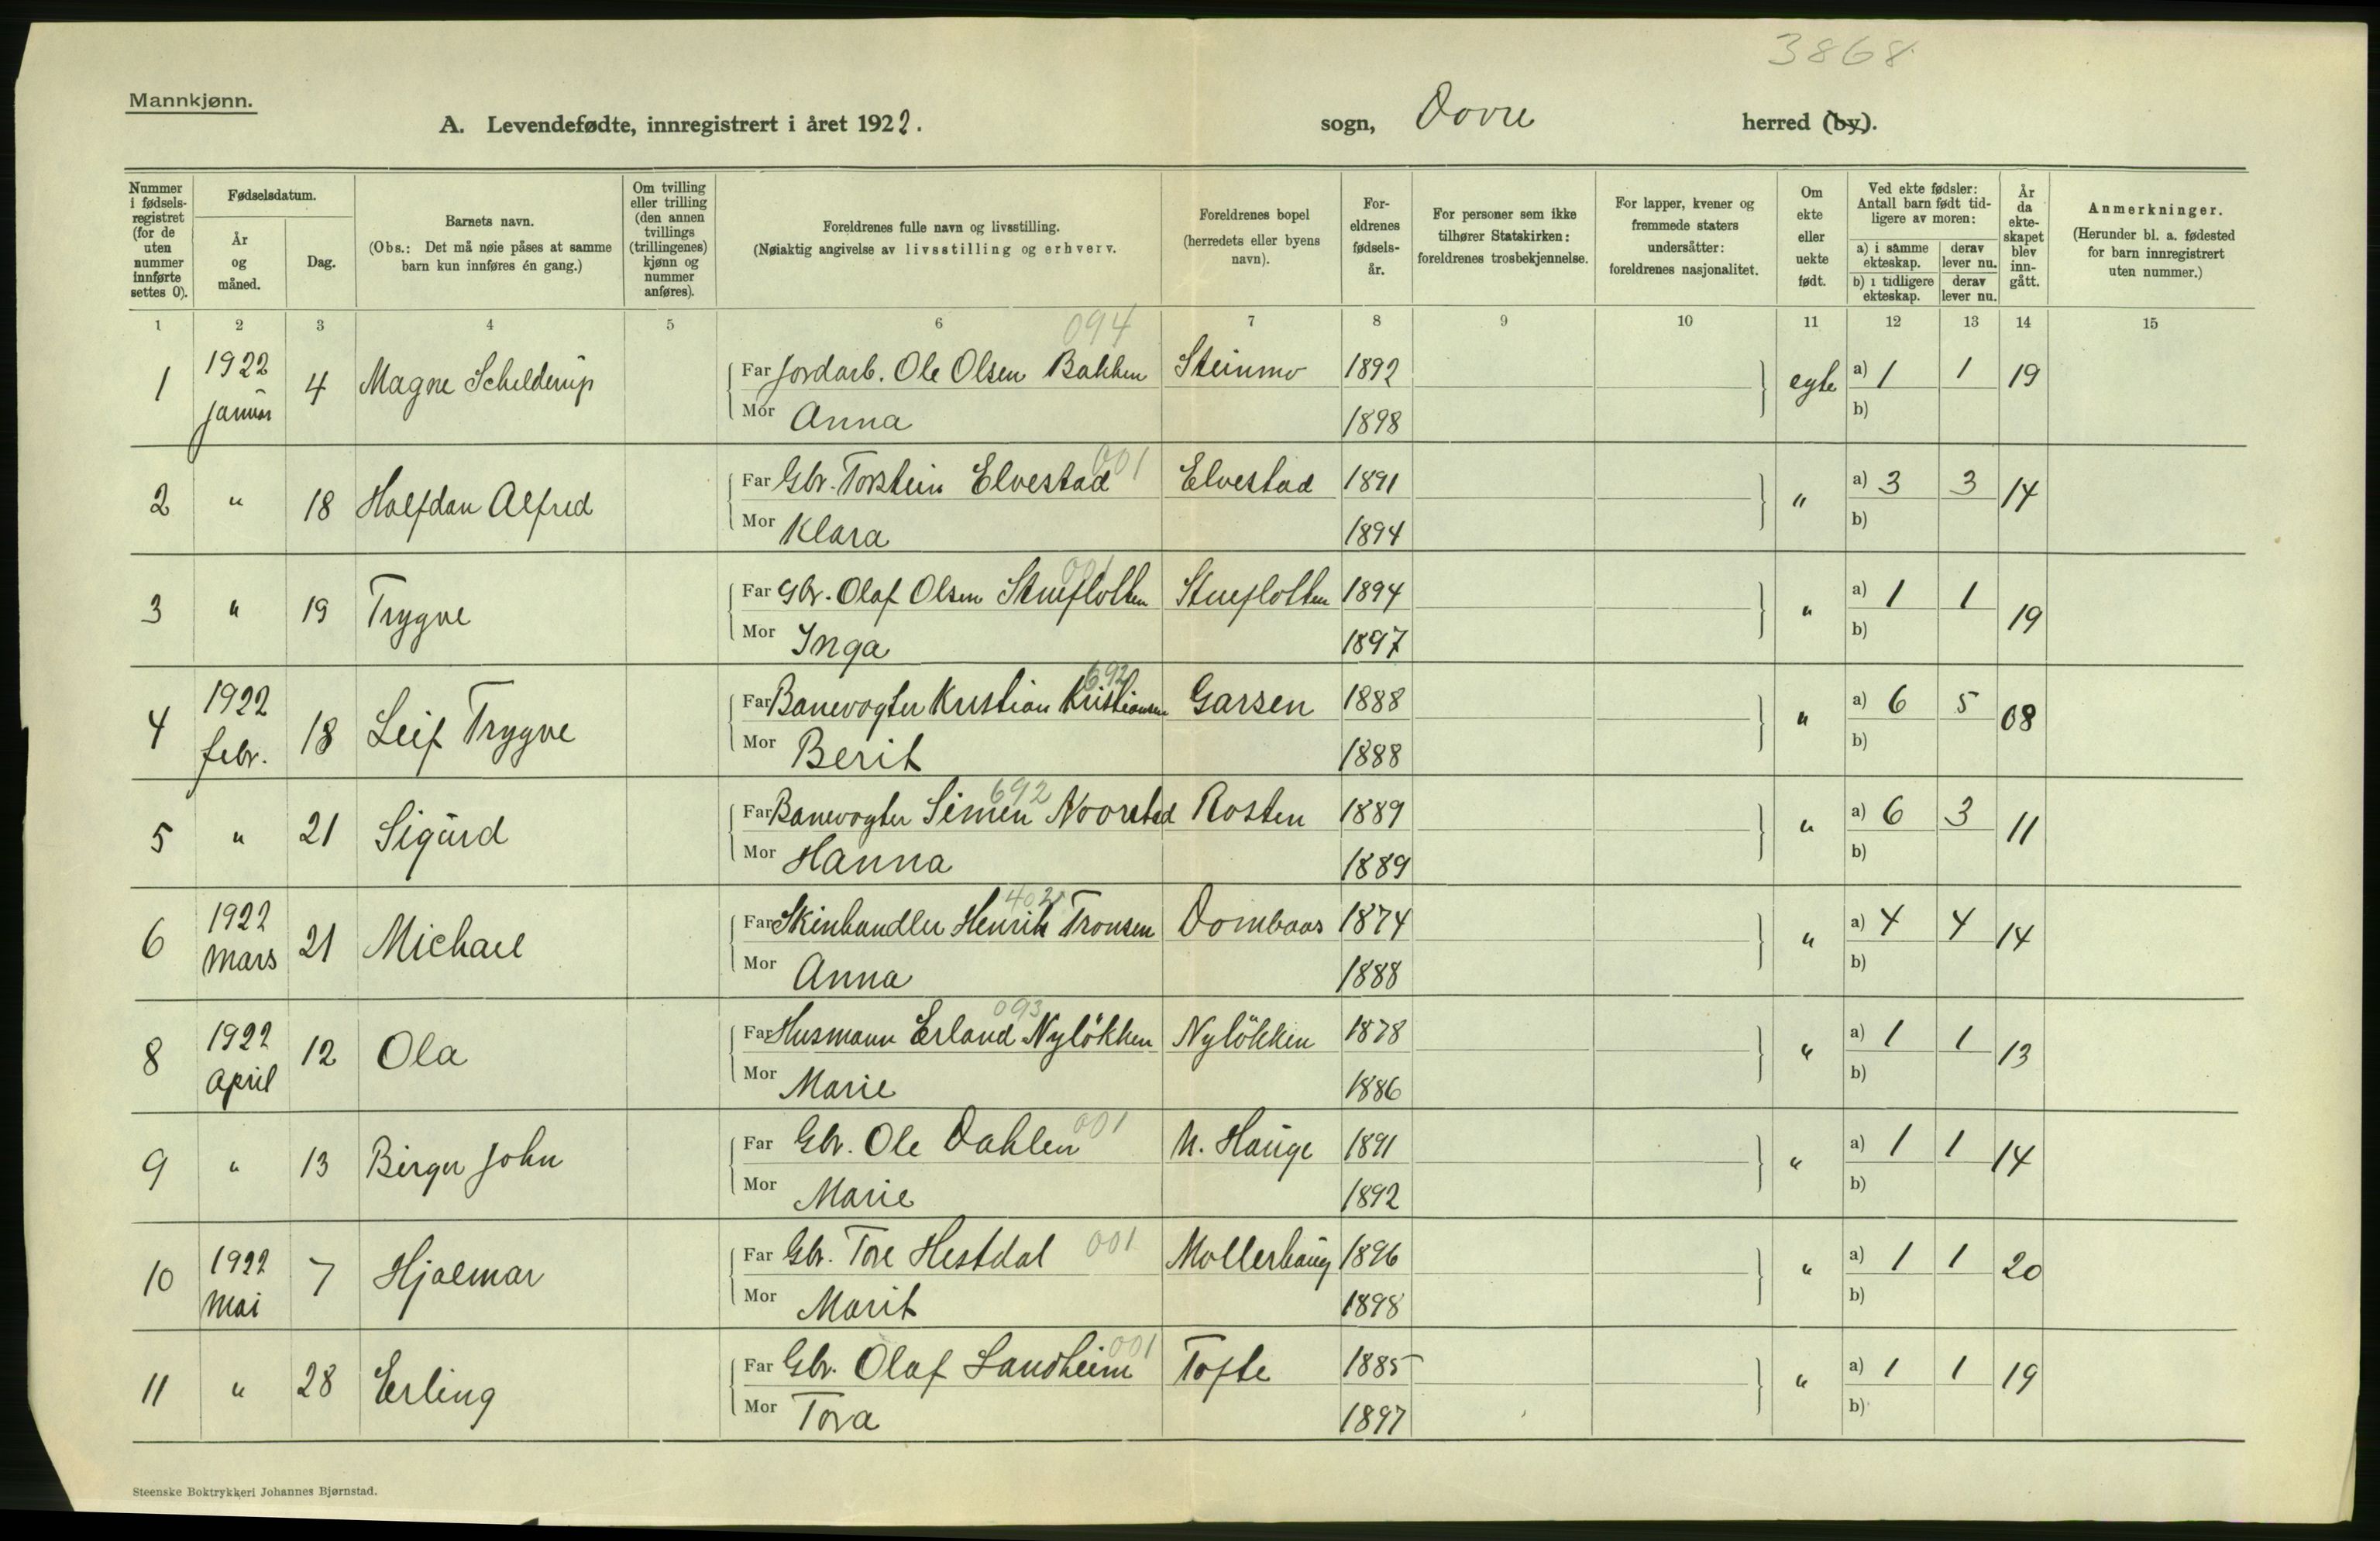 3868
Mannkjønn.
A. Levendefødte, innregistrert i året 1922. sogn, Dovre herred (by).
Nummer i fødsels-registret (for de uten nummer innførte settes 0).
Fødselsdatum.
År og måned.
Dag.
Barnets navn.
(Obs.: Det må nøie påses at samme barn kun innføres én gang.)
Om tvilling eller trilling (den annen tvillings (trillingenes) kjønn og nummer anføres).
Foreldrenes fulle navn og livsstilling.
(Nøiaktig angivelse av livsstilling og erhverv.
Foreldrenes bopel (herredets eller byens navn).
For-eldrenes fødsels-år.
For personer sem ikke tilhører Statskirken: foreldrenes trosbekjennelse.
For lapper, kvener og fremmede staters undersåtter: foreldrenes nasjonalitet.
Om ekte eller uekte født.
Ved ekte fødsler: Antall barn født tid-ligere av moren:
a) i samme ekteskap. derav lever nu.
b) i tidligere ekteskap. derav lever nu.
År da ekte-skapet blev inn-gått.
Anmerkninger.
(Herunder bl. a. fødested for barn innregistrert uten nummer.)
1 2 3 4 5 6 7 8 9 10 11 12 13 14 15
094
1 1922 januar 4 Magne Schelderup Far Jordarb. Ole Olsen Bakken Steinmo 1892 egte a) 1 1 19
Mor Anna 1898 b)
001
2 " 18 Halfdan Alfred Far Gbr. Torstein Elvestad Elvestad 1891 " a) 3 3 14
Mor Klara 1894 b)
001
3 " 19 Trygve Far Gbr. Olaf Olsen Stueflotten Stueflotten 1894 " a) 1 1 19
Mor Inga 1897 b)
692
4 1922 febr. 18 Leif Trygve Far Banevogter Kristian Kristiansen Garsen 1888 " a) 6 5 08
Mor Berit 1888 b)
692
5 " 21 Sigurd Far Banevogter Simen Noorstad Rosten 1889 " a) 6 3 11
Mor Hanna 1889 b)
402
6 1922 Mars 21 Michael Far Skinhandler Henrik Tronsen Dombaas 1874 " a) 4 4 14
Mor Anna 1888 b)
093
8 1922 April 12 Ola Far Husmann Erland Nyløkken Nyløkken 1878 " a) 1 1 13
Mor Marie 1886 b)
001
9 " 13 Birger John Far Gbr. Ole Dahlen N. Hauge 1891 " a) 1 1 14
Mor Marie 1892 b)
10 1922 Mai 7 Hjalmar Far Gbr. Tore Hestdal 001 Mollerhaug 1896 " a) 1 1 20
Mor Marit 1898 b)
001
11 " 28 Erling Far Gbr. Olaf Landheim Tofte 1885 " a) 1 1 19
Mor Tora 1897 b)
Steenske Boktrykkeri Johannes Bjørnstad.